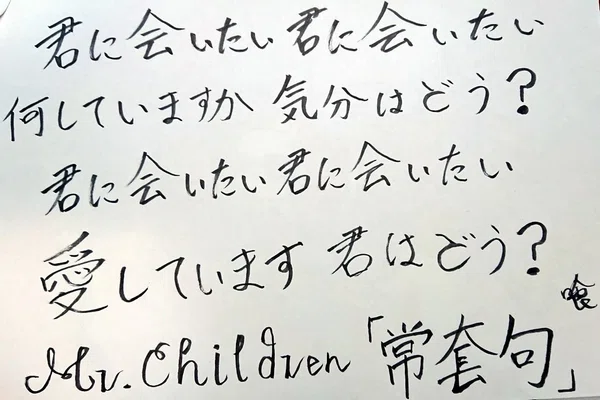 君に会いたい 君に会いたい
何していますか 気分はどう?
君に会いたい 君に会いたい
愛しています 君はどう?
喰
Mr. Children「常套句」